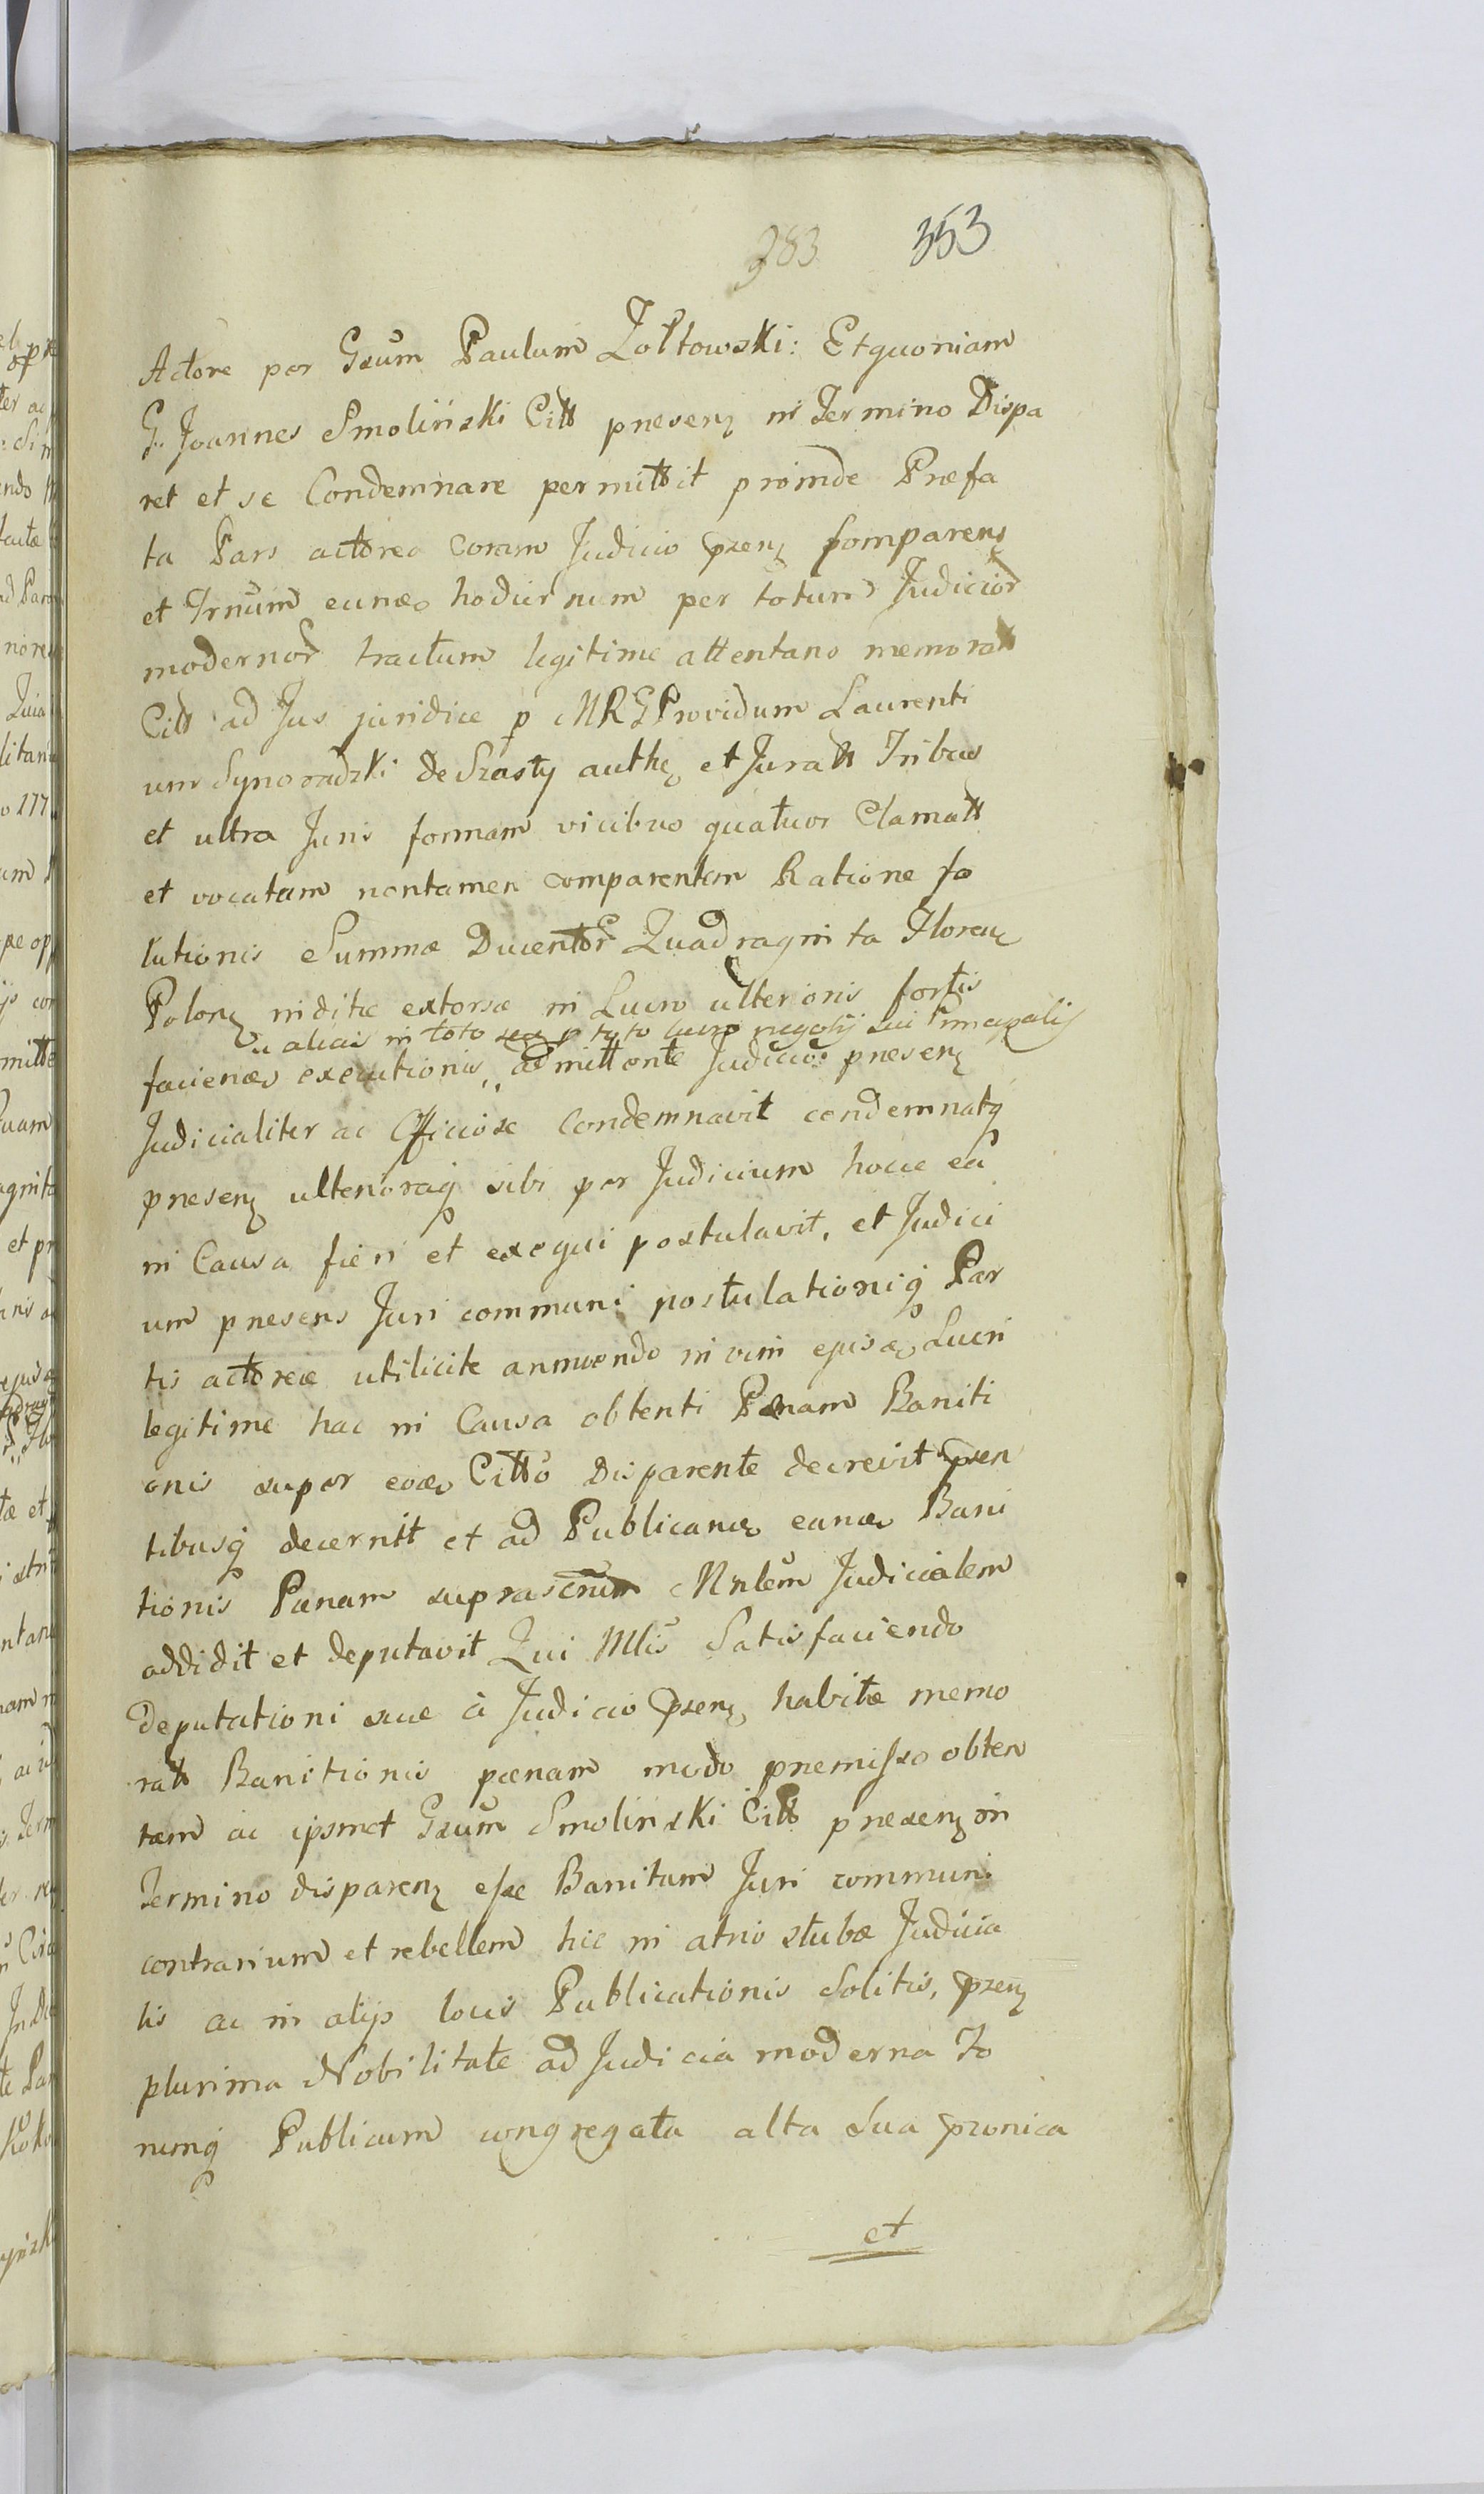 383 353
Actore per Gsum Paulum Żołtowski: Etquoniam
G. Joannes Smoliński Citt presenz in Termino Dispa
ret et se Condemnare permittit proinde Præfa
ta Pars actorea coram Judicio pzenz Comparenz
et Trnum eunde hodiernum per totum Judicior
modernor tractum legitime attentans memoratt
Citt ad Jus juridice p MRGProvidum Laurenti
um Synoradzki de Szasty authe et Juratt Tribus
et ultra Juris formam vicibus quatuor Clamatt
et vocatum nontamen comparentem Ratione so
lutionis Summæ Ducentor Quadraginta Florenz
Polonz indite extorsæ in Lucro ulterioris fortis
alias in toto p toto lucro negotij sui Principalis
faciende executionis,, admittente Judicio presenz
Judicialiter ac Officiose Condemnavit condemnatq
presenz ulterioraq sibi per Judicium hocce ea
in Causa fieri et exequi postulavit, et Judici
um presens Juri communi postulationiq Par
tis actoreæ utilicite annuendo in vim ejusde Lucri
legitime hac in Causa obtenti Pænam Baniti
onis super eode Citto Disparente decrevit pzen
tibusq decernit et ad Publicande eande Bani
tionis Pænam suprascrum Mnlem Judicialem
addidit et deputavit Qui Mlis Satisfaciendo
deputationi suæ à Judicio pzenz habitæ memo
ratt Banitionis pænam modo premisso obten
tam ac ipsmet Gsum Smolinski Citt presenz in
Termino disparenz esse Banitum Juri communi
contrarium et rebellem hic in atrio stubæ Judicia
lis ac in alijs locis Publicationis Solitis, pzenz
plurima Nobilitate ad Judicia moderna Fo
rumq Publicum congregata alta Sua pronica
et